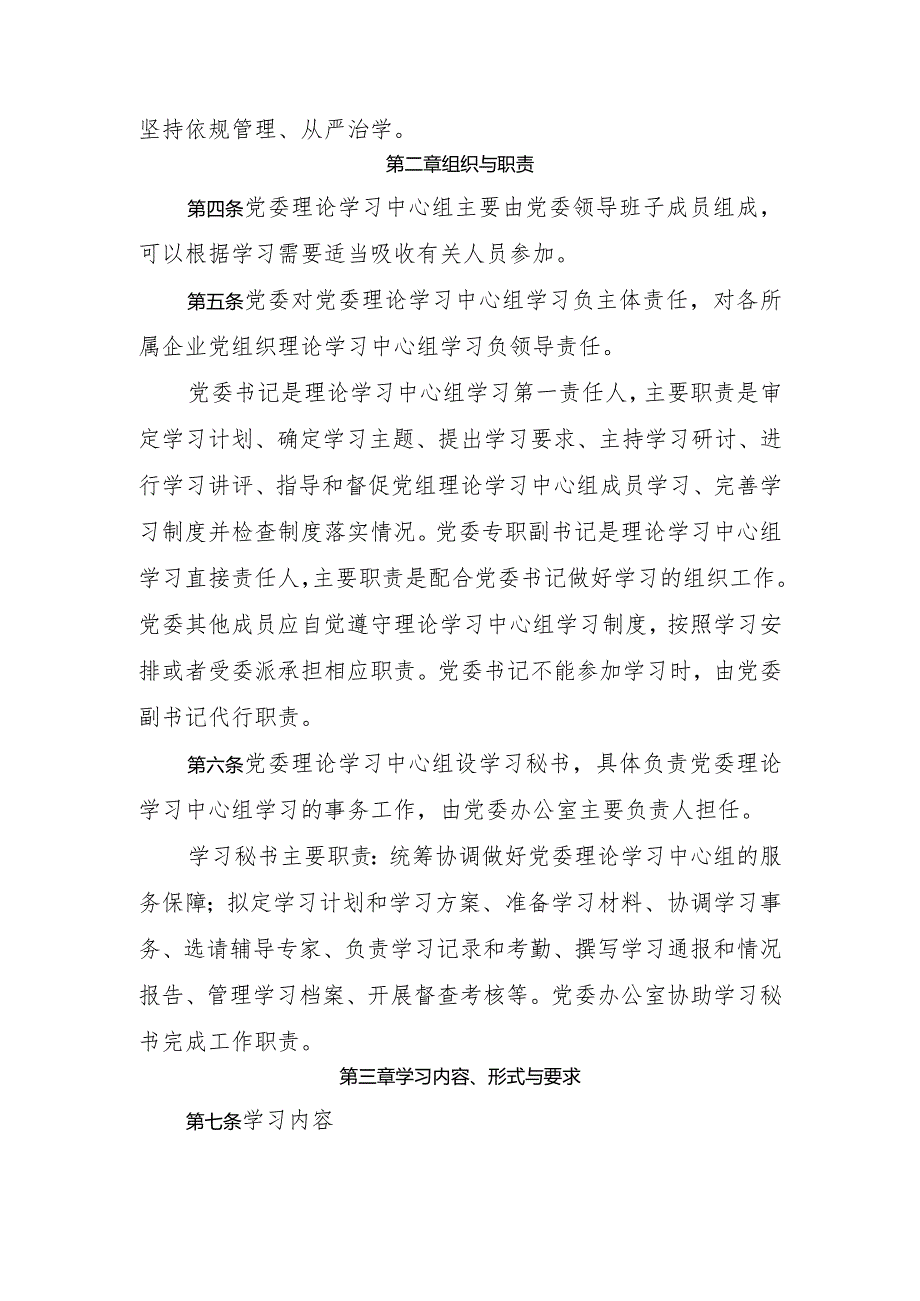 坚持依规管理、从严治学。
第二章组织与职责
第四条党委理论学习中心组主要由党委领导班子成员组成，
可以根据学习需要适当吸收有关人员参加。
第五条党委对党委理论学习中心组学习负主体责任，对各所
属企业党组织理论学习中心组学习负领导责任。
党委书记是理论学习中心组学习第一责任人，主要职责是审
定学习计划、确定学习主题、提出学习要求、主持学习研讨、进
行学习讲评、指导和督促党组理论学习中心组成员学习、完善学
习制度并检查制度落实情况。党委专职副书记是理论学习中心组
学习直接责任人，主要职责是配合党委书记做好学习的组织工作。
党委其他成员应自觉遵守理论学习中心组学习制度，按照学习安
排或者受委派承担相应职责。党委书记不能参加学习时，由党委
副书记代行职责。
第六条党委理论学习中心组设学习秘书，具体负责党委理论
学习中心组学习的事务工作，由党委办公室主要负责人担任。
学习秘书主要职责：统筹协调做好党委理论学习中心组的服
务保障；拟定学习计划和学习方案、准备学习材料、协调学习事
务、选请辅导专家、负责学习记录和考勤、撰写学习通报和情况
报告、管理学习档案、开展督查考核等。党委办公室协助学习秘
书完成工作职责。
第三章学习内容、形式与要求
第七条学习内容